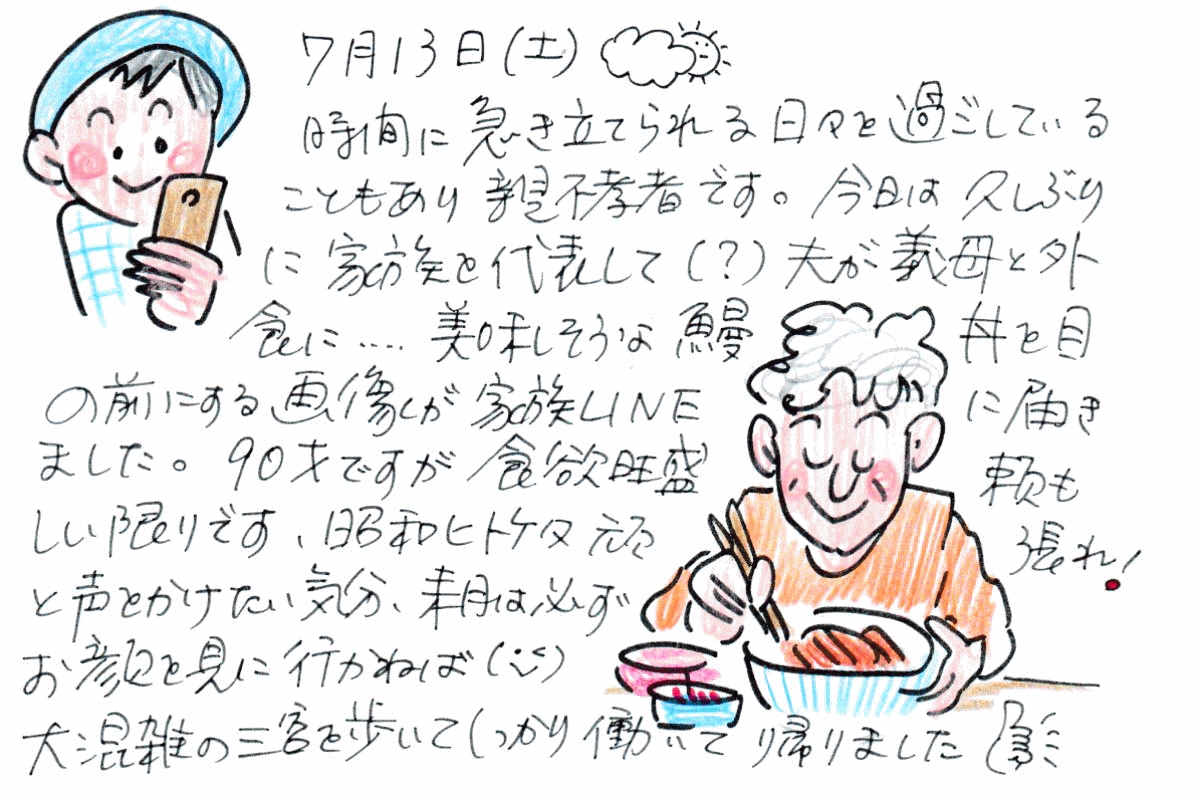 7月13日(土)
時間に急き立てられる日々を過ごしている
こともあり親不孝者です。今日は久しぶり
に家族を代表して(?)夫が義母と外
食に…… 美味しそうな鰻丼を目
の前にする画像が家族LINEに届き
ました。90才ですが食欲旺盛頼も
しい限りです、昭和ヒトケタ頑張れ!
と声をかけたい気分、来月は必ず
お顔を見に行かねば
大混雑の三宮を歩いてしっかり働いて帰りました